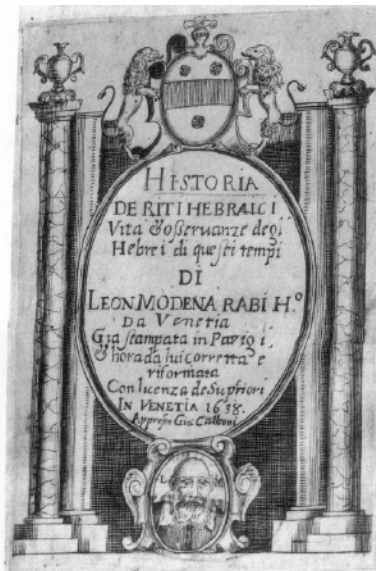 HISTORIA
DE RITI HEBRAICI
Vita & osseruanze degi,
Hebrei di questi tempi
DI
LEON MODENA RABI H.º
Da Venetia
Gia stampata in Parigi,
& hora da lui corretta e
riformata
Con licenza de Supriori
IN VENETIA 1638.
Appresso Gio: Calleoni
L M